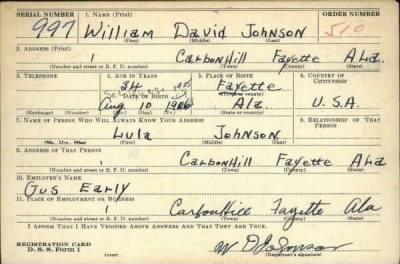 SERIAL NUMBER 1. NAME (Print) ORDER NUMBER
997 William David Johnson 510
(First) (Middle) (Last)
2. ADDRESS (Print)
1 Carbon Hill Fayette Ala.
(Number and street or R. F. D. number) (Town) (County) (State)
3. TELEPHONE 4. AGE IN YEARS 5. PLACE OF BIRTH 6. COUNTRY OF CITIZENSHIP
34 Fayette
DATE OF BIRTH (Town or county)
Aug 10 1906 Ala. U.S.A.
(Exchange) (Number) (Mo.) (Day) (Yr.) (State or country)
7. NAME OF PERSON WHO WILL ALWAYS KNOW YOUR ADDRESS 8. RELATIONSHIP OF THAT PERSON
Lula Johnson
(Mr., Mrs., Miss) (First) (Middle) (Last)
9. ADDRESS OF THAT PERSON
1 Carbon Hill Fayette Ala
(Number and street or R. F. D. number) (Town) (County) (State)
10. EMPLOYER'S NAME
Gus Early
11. PLACE OF EMPLOYMENT OR BUSINESS
1 Carbon Hill Fayette Ala
(Number and street or R. F. D. number) (Town) (County) (State)
I AFFIRM THAT I HAVE VERIFIED ABOVE ANSWERS AND THAT THEY ARE TRUE.
REGISTRATION CARD W D Johnson
D. S. S. Form 1 (over) (Registrant's signature)